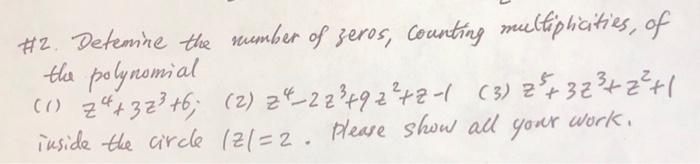 #2. Detemine the number of zeros, counting multiplicities, of
the polynomial
(1) z⁴+3z³+6; (2) z⁴-2z³+9z²+z-1 (3) z⁵+3z³+z²+1
inside the circle |z|=2. Please show all your work.